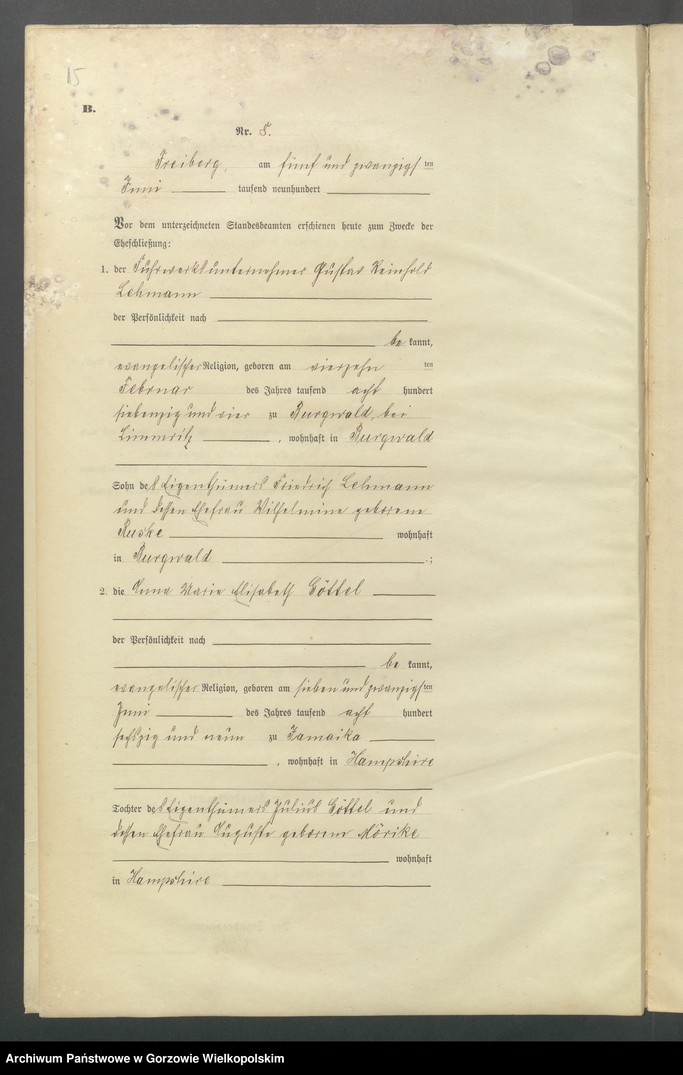 15
B.
Nr. 8.
Freiberg, am fünf und zwanzigsten
Juni tausend neunhundert
Vor dem unterzeichneten Standesbeamten erschienen heute zum Zwecke der
Eheschließung:
1. der Fuhrwerksunternehmer Gustav Reinhold
Lehmann
der Persönlichkeit nach
be kannt,
evangelischer Religion, geboren am vierzehn ten
Februar des Jahres tausend acht hundert
siebenzig und vier zu Burgwald bei
Limmritz, wohnhaft in Burgwald
Sohn des Eigenthümers Friedrich Lehmann
und dessen Ehefrau Wilhelmine geborene
Ruske wohnhaft
in Burgwald ;
2. die Anna Marie Elisabeth Göttel
der Persönlichkeit nach
be kannt,
evangelischer Religion, geboren am sieben und zwanzigsten
Juni des Jahres tausend acht hundert
sechszig und neun zu Jamaika
, wohnhaft in Hampshire
Tochter des Eigenthümers Julius Göttel und
dessen Ehefrau Auguste geborene Mörike
wohnhaft
in Hampshire
Archiwum Państwowe w Gorzowie Wielkopolskim